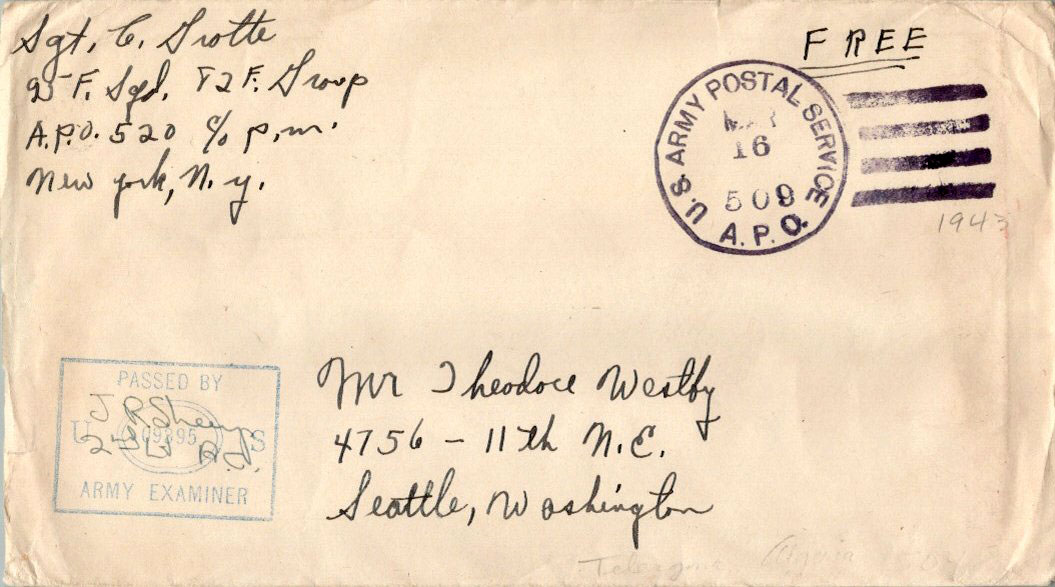 Sgt. C. Trotte
95 F. Sqd. 82 F. Group
A.P.O. 520 c/o p.m.
New York, N.Y.
FREE
U.S. ARMY POSTAL SERVICE
MAR
16
509
A.P.O.
1943
PASSED BY
U S
09895
ARMY EXAMINER
Mr Theodore Westby
4756 - 11th N.E.
Seattle, Washington